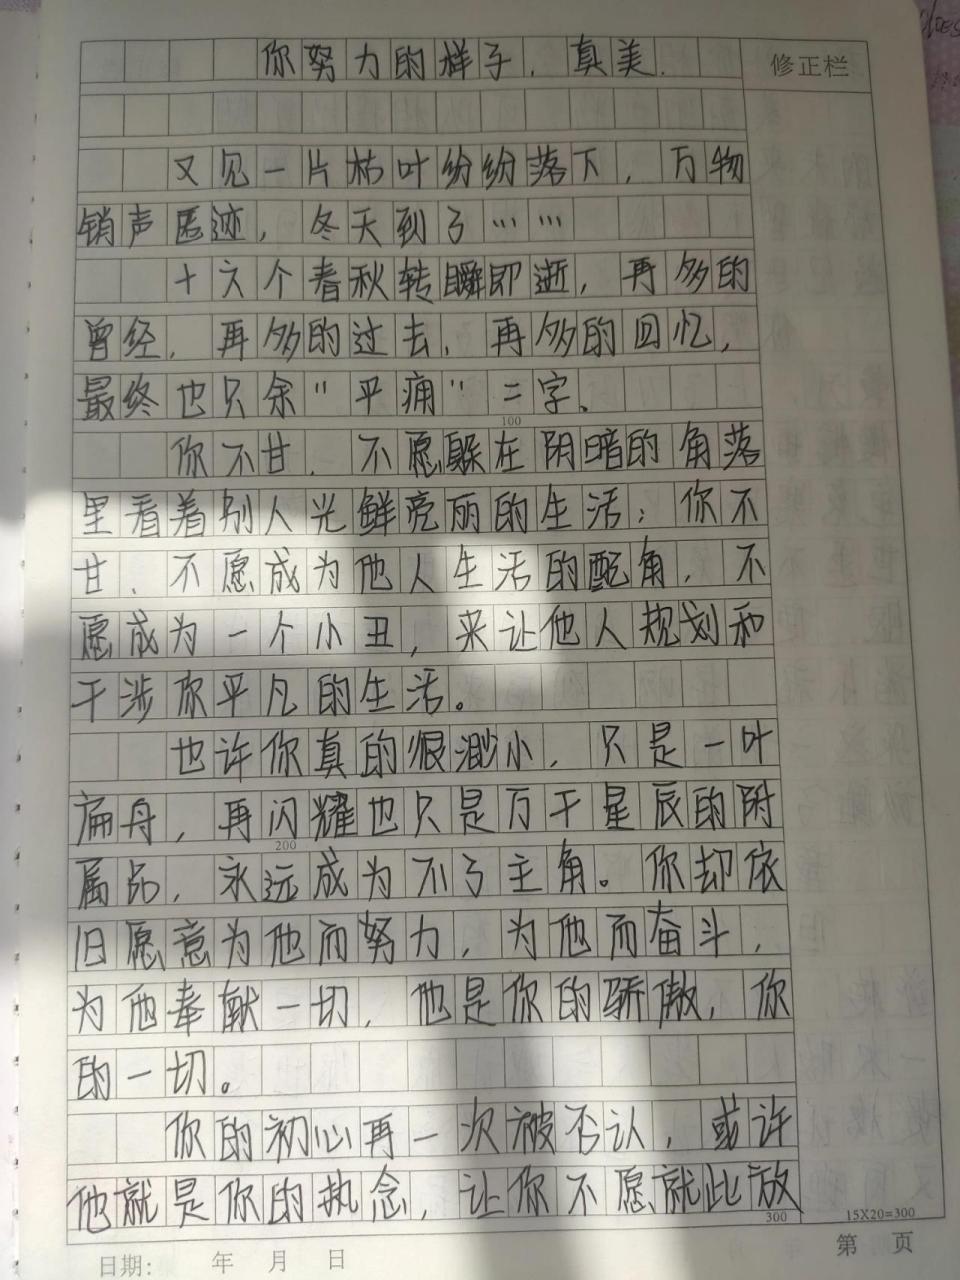 你努力的样子，真美.
修正栏
又见一片枯叶纷纷落下，万物
销声匿迹，冬天到了……
十六个春秋转瞬即逝，再多的
曾经，再多的过去，再多的回忆，
最终也只余"平痛"二字、
100
你不甘，不愿躲在阴暗的角落
里看着别人光鲜亮丽的生活；你不
甘、不愿成为他人生活的配角，不
愿成为一个小丑，来让他人规划和
干涉你平凡的生活。
也许你真的很渺小，只是一叶
扁舟，再闪耀也只是万千星辰的附
200
属品，永远成为不了主角。你却依
旧愿意为他而努力，为他而奋斗，
为他奉献一切，他是你的骄傲，你
的一切。
你的初心再一次被否认，或许
他就是你的执念，让你不愿就此放
300
15X20=300
日期: 年 月 日
第 页